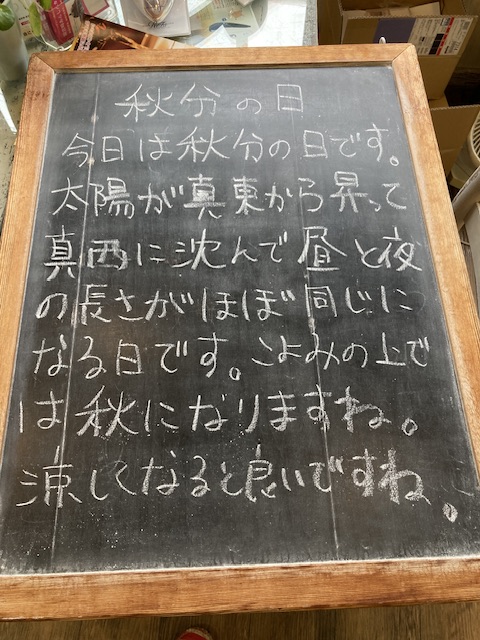 秋分の日
今日は秋分の日です。
太陽が真東から昇って
真西に沈んで昼と夜
の長さがほぼ同じに
なる日です。こよみの上で
は秋になりますね。
涼しくなると良いですね。